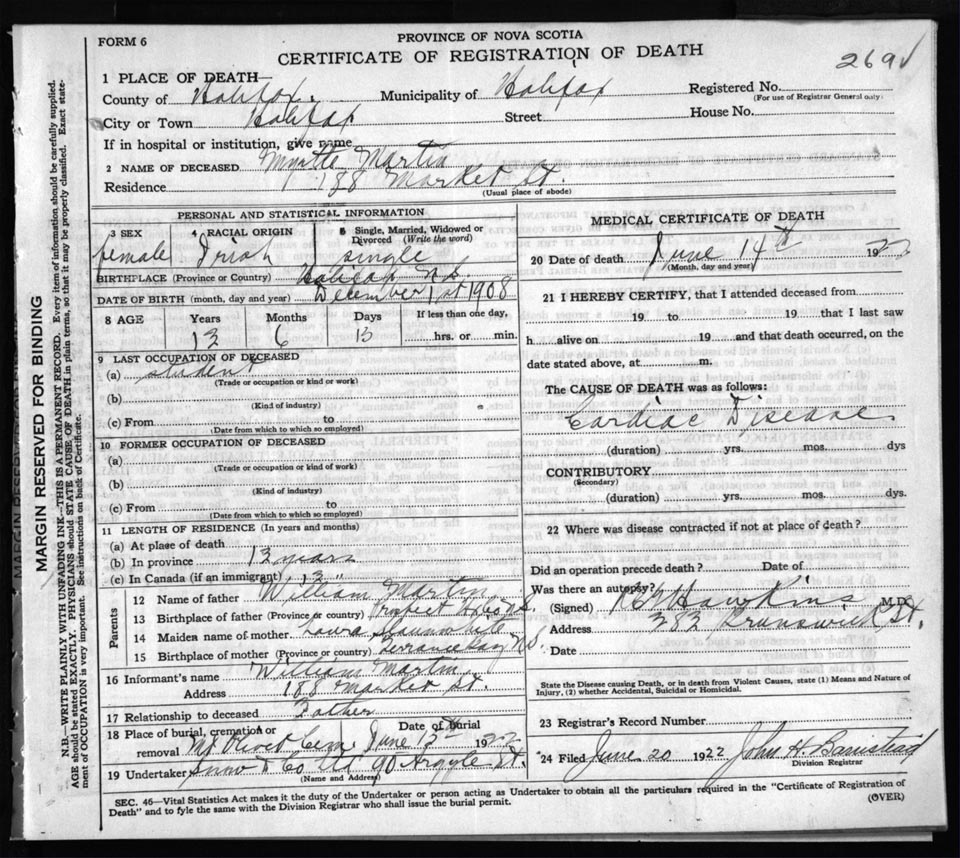 FORM 6
PROVINCE OF NOVA SCOTIA
CERTIFICATE OF REGISTRATION OF DEATH
269
1 PLACE OF DEATH
County of Halifax. Municipality of Halifax Registered No.
(For use of Registrar General only)
City or Town Halifax Street House No.
If in hospital or institution, give name
2 NAME OF DECEASED Myrtle Martin
Residence 188 Market St.
(Usual place of abode)
PERSONAL AND STATISTICAL INFORMATION
3 SEX 4 RACIAL ORIGIN 5 Single, Married, Widowed or Divorced (Write the word)
female Irish single
BIRTHPLACE (Province or Country) Halifax N.S.
DATE OF BIRTH (month, day and year) December 1st 1908
8 AGE Years Months Days If less than one day,
13 6 13 hrs. or min.
9 LAST OCCUPATION OF DECEASED
(a) student
(Trade or occupation or kind or work)
(b)
(Kind of industry)
(c) From to
(Date from which to which so employed)
10 FORMER OCCUPATION OF DECEASED
(a)
(Trade or occupation or kind of work)
(b)
(Kind of industry)
(c) From to
(Date from which to which so employed)
11 LENGTH OF RESIDENCE (In years and months)
(a) At place of death
(b) In province 13 years
(c) In Canada (if an immigrant) 13 "
Parents
12 Name of father William Martin
13 Birthplace of father (Province or country) Prospect N.S.
14 Maiden name of mother
15 Birthplace of mother (Province or country) Terrance Bay N.S.
16 Informant's name William Martin
Address 188 Market St.
17 Relationship to deceased Father
18 Place of burial, cremation or removal Mt Olivet Cem Date of burial June 1922
19 Undertaker Snow & Co Ltd 90 Argyle St.
(Name and Address)
MEDICAL CERTIFICATE OF DEATH
20 Date of death June 14th 1922
(Month, day and year)
21 I HEREBY CERTIFY, that I attended deceased from
19 to 19 that I last saw
h alive on 19 and that death occurred, on the
date stated above, at m.
The CAUSE OF DEATH was as follows:
Cardiac Disease
(duration) yrs. mos. dys
CONTRIBUTORY
(Secondary)
(duration) yrs. mos. dys.
22 Where was disease contracted if not at place of death?
Did an operation precede death? Date of
Was there an autopsy?
(Signed) Hawkins M.D.
Address 282 Brunswick St.
Date
State the Disease causing Death, or in death from Violent Causes, state (1) Means and Nature of
Injury, (2) whether Accidental, Suicidal or Homicidal.
23 Registrar's Record Number
24 Filed June 20 1922 John H. Barnstead
Division Registrar
SEC. 46—Vital Statistics Act makes it the duty of the Undertaker or person acting as Undertaker to obtain all the particulars required in the "Certificate of Registration of
Death" and to fyle the same with the Division Registrar who shall issue the burial permit.
(OVER)
MARGIN RESERVED FOR BINDING
N.B.—WRITE PLAINLY WITH UNFADING INK—THIS IS A PERMANENT RECORD. Every item of information should be carefully supplied.
AGE should be stated EXACTLY. PHYSICIANS should STATE CAUSE OF DEATH in plain terms, so that it may be properly classified. Exact state-
ment of OCCUPATION is very important. See instructions on back of Certificate.